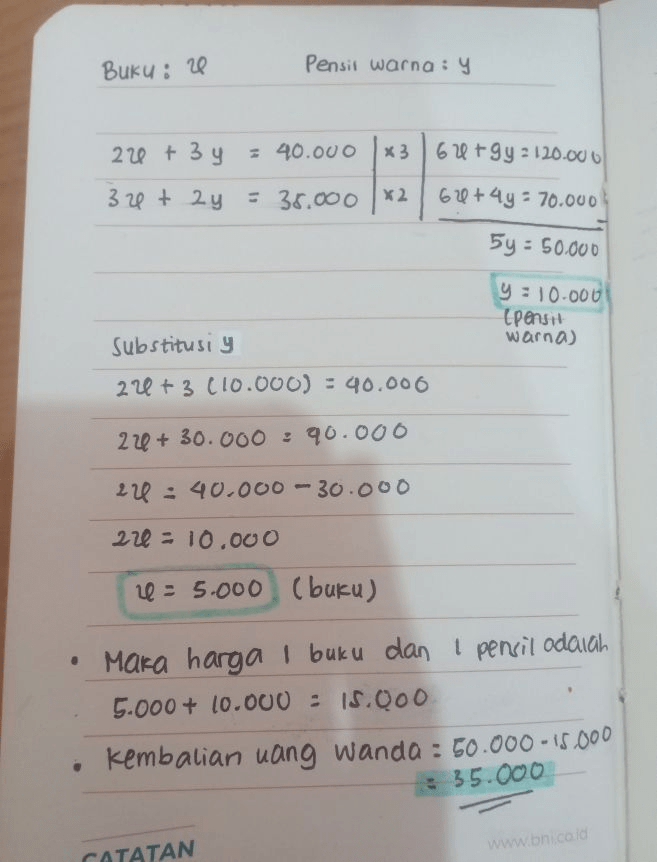 Buku : x Pensil warna : y
2x + 3y = 40.000 | x3 | 6x + 9y = 120.000
3x + 2y = 35.000 | x2 | 6x + 4y = 70.000
5y = 50.000
y = 10.000
(pensil
warna)
Substitusi y
2x + 3 (10.000) = 40.000
2x + 30.000 = 40.000
2x = 40.000 - 30.000
2x = 10.000
x = 5.000 (buku)
• Maka harga 1 buku dan 1 pensil adalah
5.000 + 10.000 = 15.000
• Kembalian uang Wanda = 50.000 - 15.000
= 35.000
CATATAN www.bni.co.id